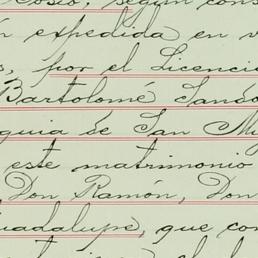 Cosío, según cons
n expedida en v
s, por el Licenci
Bartolomé Sando
quia de San Mi
este matrimonio
Don Ramón, Don
uadalupe, que con